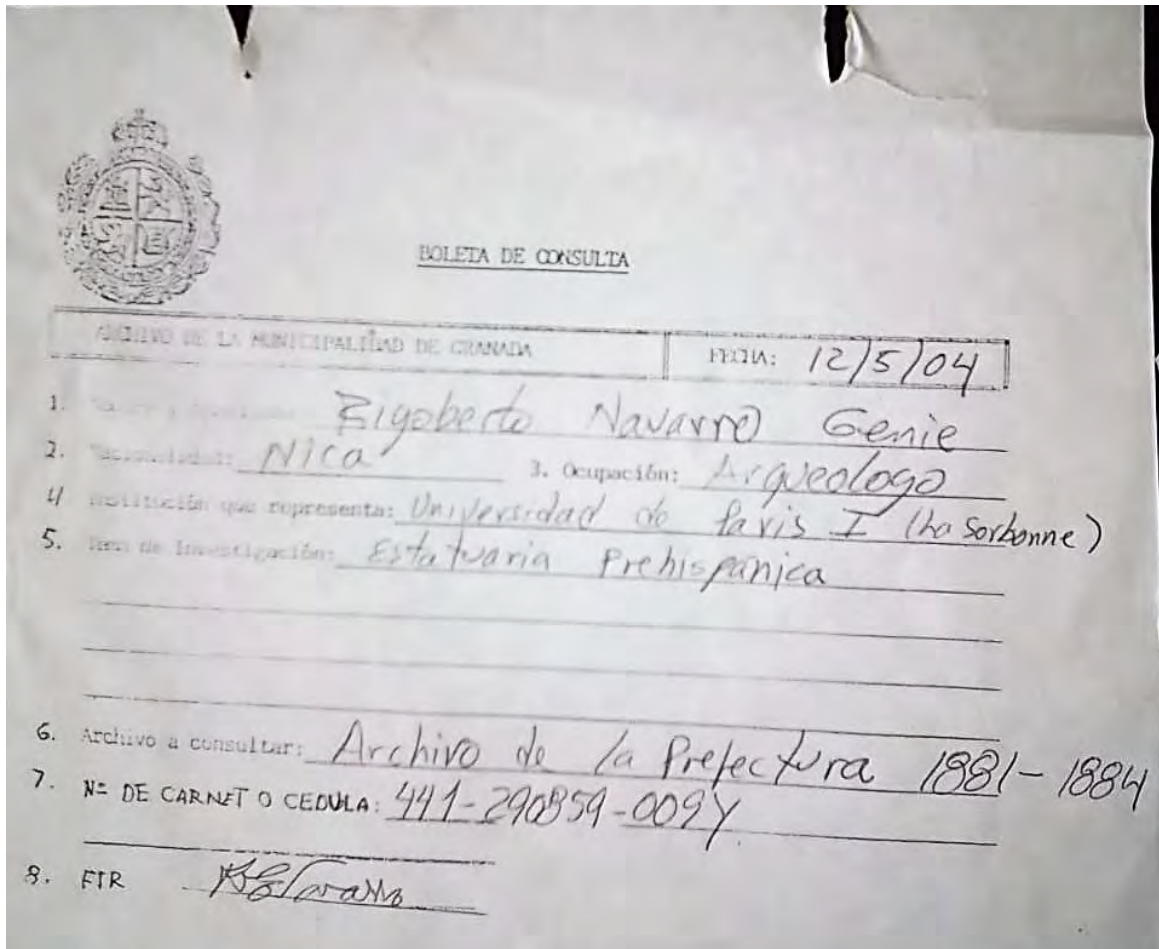 BOLETA DE CONSULTA
ARCHIVO DE LA MUNICIPALIDAD DE GRANADA FECHA: 12/5/04
1. Rigoberto Navarro Genie
2. Nacionalidad: Nica 3. Ocupación: Arqueologo
4 Institución que representa: Universidad de Paris I (La Sorbonne)
5. Area de Investigación: Estatuaria Prehispánica
6. Archivo a consultar: Archivo de la Prefectura 1881-1884
7. Nº DE CARNET O CEDULA: 441-290859-009Y
8. FIR